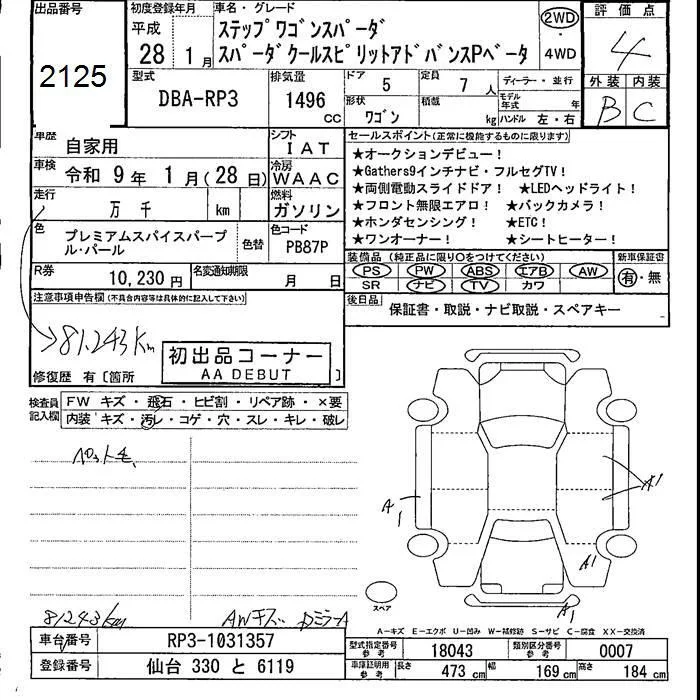 出品番号
2125
初度登録年月
平成
28年 1月
車名・グレード
ステップワゴンスパーダ
スパーダクールスピリットアドバンスPベータ
2WD
・
4WD
評価点
4
外装 内装
B C
型式
DBA-RP3
排気量
1496
cc
ドア
5
定員
7人
形状
ワゴン
積載
kg
ディーラー・並行
モデル年式 年
ハンドル 左・右
車歴
自家用
シフト
IAT
車検
令和 9年 1月(28日)
冷房
WAAC
走行
万 千 km
燃料
ガソリン
色
プレミアムスパイスパープ
ル・パール
色替
色コード
PB87P
R券
10,230円
名変通知期限
月 日
セールスポイント(正常に機能するものに限ります)
★オークションデビュー!
★Gathers9インチナビ・フルセグTV!
★両側電動スライドドア! ★LEDヘッドライト!
★フロント無限エアロ! ★バックカメラ!
★ホンダセンシング! ★ETC!
★ワンオーナー! ★シートヒーター!
装備品(純正品に限り○をつけてください)
PS PW ABS エアB AW
SR ナビ TV カワ
新車保証書
有・無
後日品
保証書・取説・ナビ取説・スペアキー
注意事項申告欄(不具合内容等は具体的に記入して下さい)
81,243Km
初出品コーナー
AA DEBUT
修復歴 有〔箇所 〕
検査員
記入欄
FW キズ・飛石・ヒビ割・リペア跡・×要
内装 キズ・汚レ・コゲ・穴・スレ・キレ・破レ
ペット毛
A1
A1
A1
A1
スペア
81243km
AWキズ DミラーA
A-キズ E-エクボ U-凹み W-補修跡 S-サビ C-腐食 XX-交換済
車台番号
RP3-1031357
登録番号
仙台 330 と 6119
型式指定番号
参考
18043
類別区分番号
参考
0007
車庫証明用
参考
長さ 473cm 幅 169cm 高さ 184cm